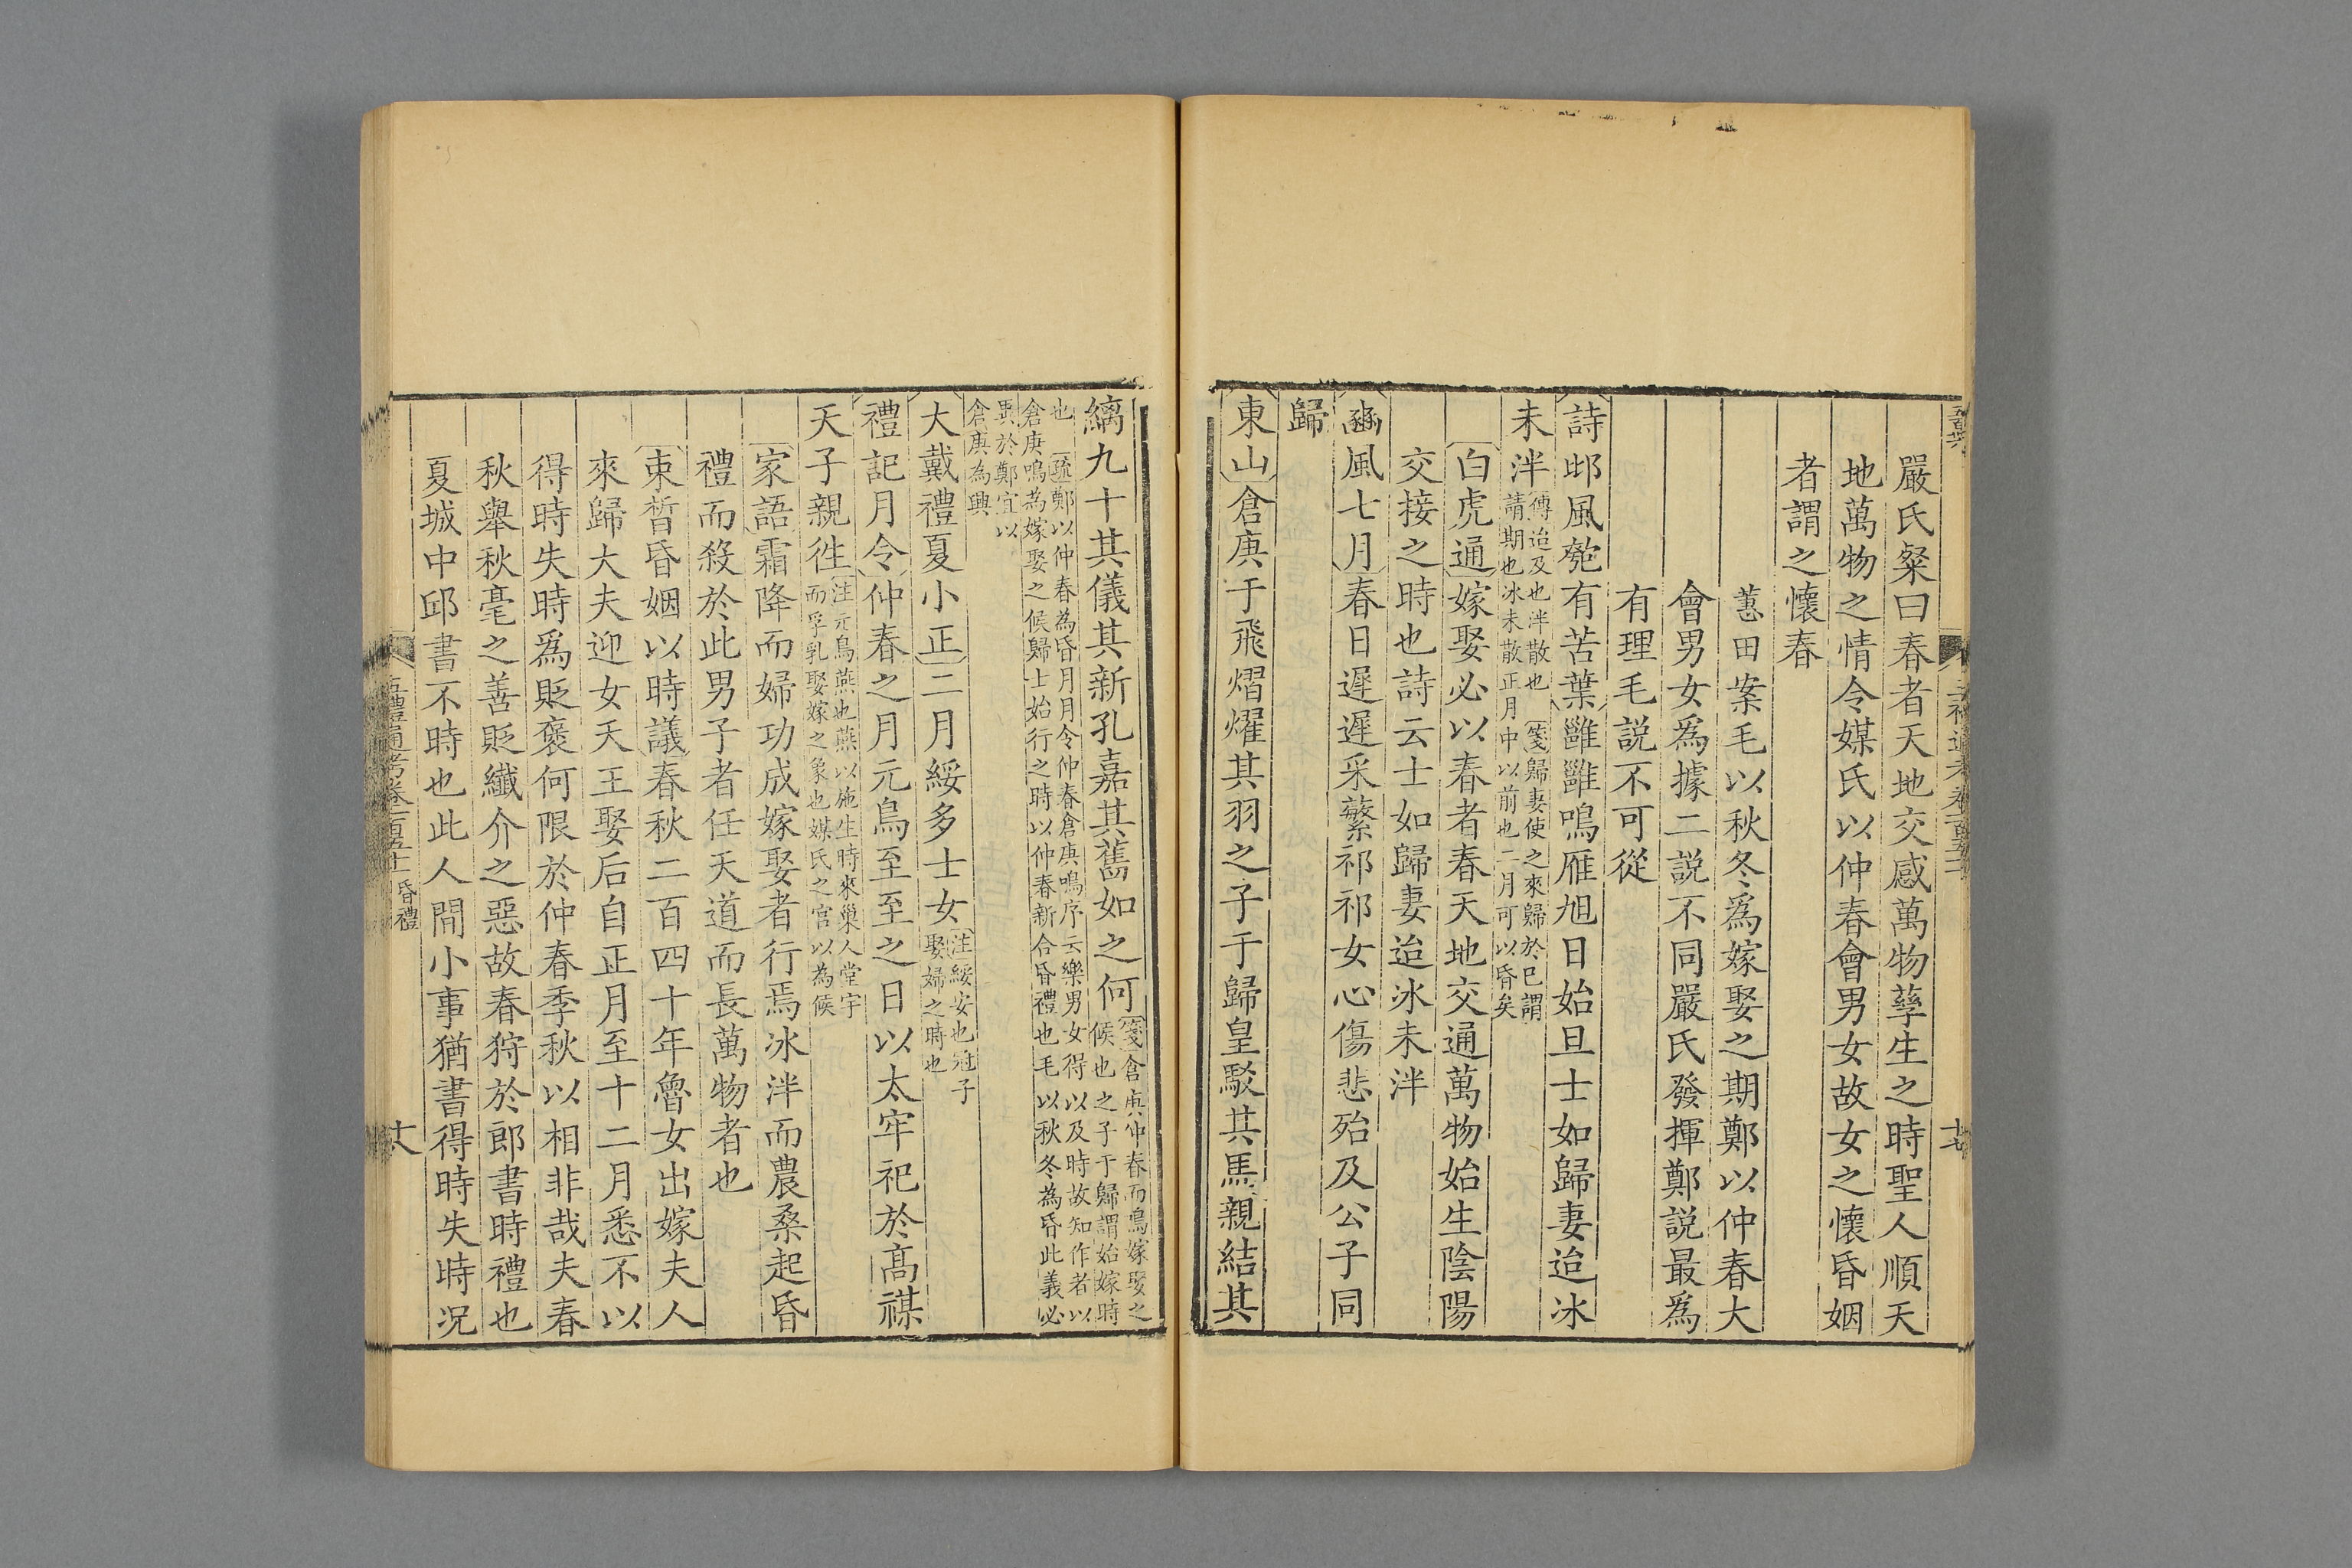 嚴氏粲曰春者天地交感萬物孳生之時聖人順天
地萬物之情令媒氏以仲春會男女故女之懷昏姻
者謂之懷春
蕙田案毛以秋冬爲嫁娶之期鄭以仲春大
會男女爲據二説不同嚴氏發揮鄭説最爲
有理毛説不可從
詩邶風匏有苦葉雝雝鳴雁旭日始旦士如歸妻迨冰
未泮傳迨及也泮散也 箋歸妻使之來歸於已謂
請期也冰未散正月中以前也二月可以昏矣
白虎通嫁娶必以春者春天地交通萬物始生陰陽
交接之時也詩云士如歸妻迨冰未泮
豳風七月春日遲遲采蘩祁祁女心傷悲殆及公子同
歸
東山倉庚于飛熠燿其羽之子于歸皇駁其馬親結其
縭九十其儀其新孔嘉其舊如之何箋倉庚仲春而鳴嫁娶之
候也之子于歸謂始嫁時
也 疏鄭以仲春為昏月月令仲春倉庚鳴序云樂男女得以及時故知作者以
倉庚鳴為嫁娶之候歸士始行之時以仲春新合昏禮也毛以秋冬為昏此義必
異於鄭宜以
倉庚為興
大戴禮夏小正二月綏多士女注綏安也冠子
娶婦之時也
禮記月令仲春之月元鳥至至之日以太牢祀於高禖
天子親徃注元鳥燕也燕以施生時來巢人堂宇
而孚乳娶嫁之象也媒氏之官以為候
家語霜降而婦功成嫁娶者行焉冰泮而農桑起昏
禮而殺於此男子者任天道而長萬物者也
束晳昏姻以時議春秋二百四十年魯女出嫁夫人
來歸大夫迎女天王娶后自正月至十二月悉不以
得時失時爲貶褒何限於仲春季秋以相非哉夫春
秋舉秋毫之善貶纖介之惡故春狩於郎書時禮也
夏城中邱書不時也此人間小事猶書得時失時況
五禮通考卷一百五十一 昏禮
十八